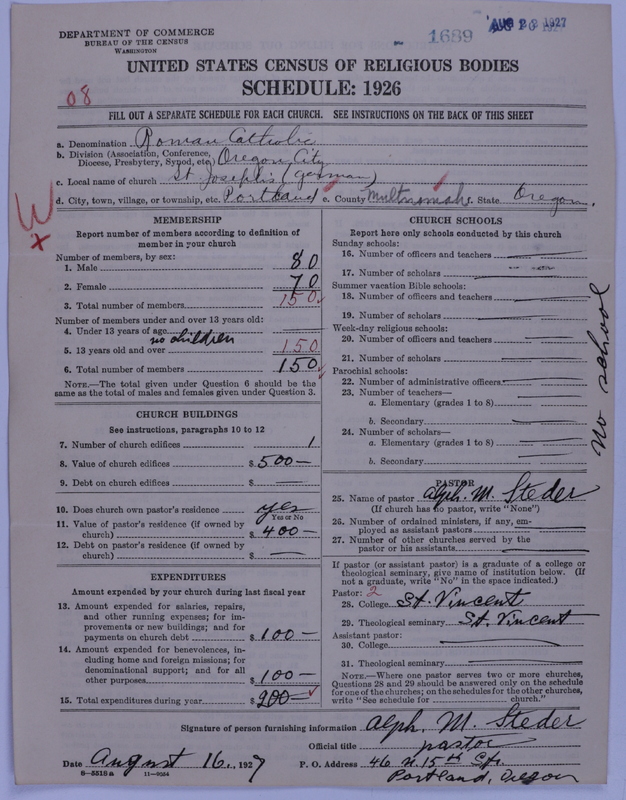 DEPARTMENT OF COMMERCE
BUREAU OF THE CENSUS
WASHINGTON
1689
1927
UNITED STATES CENSUS OF RELIGIOUS BODIES
SCHEDULE: 1926
08
FILL OUT A SEPARATE SCHEDULE FOR EACH CHURCH. SEE INSTRUCTIONS ON THE BACK OF THIS SHEET
a. Denomination Roman Catholic
b. Division (Association, Conference, Diocese, Presbytery, Synod, etc) Oregon City
c. Local name of church St. Joseph's (German)
d. City, town, village, or township, etc. Portland e. County Multnomah f. State Oregon.
W
x
MEMBERSHIP
Report number of members according to definition of
member in your church
Number of members, by sex:
1. Male 80
2. Female 70
3. Total number of members 150
Number of members under and over 13 years old:
4. Under 13 years of age
no children
5. 13 years old and over 150
6. Total number of members 150
NOTE.—The total given under Question 6 should be
same as the total of males and females given under Question 3.
CHURCH BUILDINGS
See instructions, paragraphs 10 to 12
7. Number of church edifices 1
8. Value of church edifices $ 500—
9. Debt on church edifices $ —
10. Does church own pastor's residence yes
Yes or No
11. Value of pastor's residence (if owned by
church) $ 400—
12. Debt on pastor's residence (if owned by
church) $ —
EXPENDITURES
Amount expended by your church during last fiscal year
13. Amount expended for salaries, repairs,
and other running expenses; for im-
provements or new buildings; and for
payments on church debt $ 100—
14. Amount expended for benevolences, in-
cluding home and foreign missions; for
denominational support; and for all
other purposes $ 100—
15. Total expenditures during year $ 200—
CHURCH SCHOOLS
Report here only schools conducted by this church
Sunday schools:
16. Number of officers and teachers
17. Number of scholars
Summer vacation Bible schools:
18. Number of officers and teachers
19. Number of scholars
Week-day religious schools:
20. Number of officers and teachers
21. Number of scholars
Parochial schools:
22. Number of administrative officers
23. Number of teachers—
a. Elementary (grades 1 to 8)
b. Secondary
24. Number of scholars—
a. Elementary (grades 1 to 8)
b. Secondary
No school
PASTOR
25. Name of pastor Alph. M. Steder
(If church has no pastor, write "None")
26. Number of ordained ministers, if any, em-
ployed as assistant pastors
27. Number of other churches served by the
pastor or his assistants
If pastor (or assistant pastor) is a graduate of a college or
theological seminary, give name of institution below. (If
not a graduate, write "No" in the space indicated.)
Pastor: 2
28. College St. Vincent
29. Theological seminary St. Vincent
Assistant pastor:
30. College
31. Theological seminary
NOTE.—Where one pastor serves two or more churches,
Questions 28 and 29 should be answered only on the schedule
for one of the churches; on the schedules for the other churches,
write "See schedule for church."
Signature of person furnishing information Alph. M. Steder
Official title pastor
Date August 16, 1927 P. O. Address 46 N. 15th St.
8—5518a 11—9024 Portland, Oregon